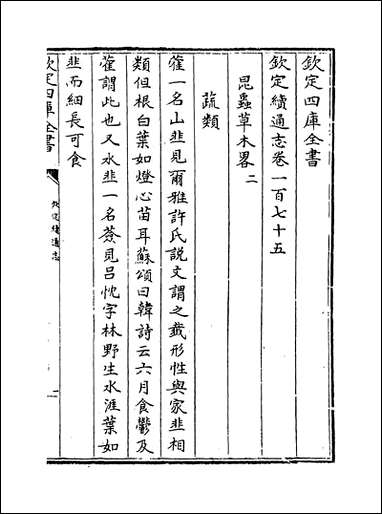 欽定四庫全書
欽定續通志卷一百七十五
昆蟲草木畧二
蔬類
藿一名山韭見爾雅許氏說文謂之韱形性與家韭相
類但根白葉如燈心苗耳蘇頌曰韓詩云六月食鬱及
藿謂此也又水韭一名䕬見吕忱字林野生水涯葉如
韭而細長可食
欽定四庫全書
欽定續通志
一